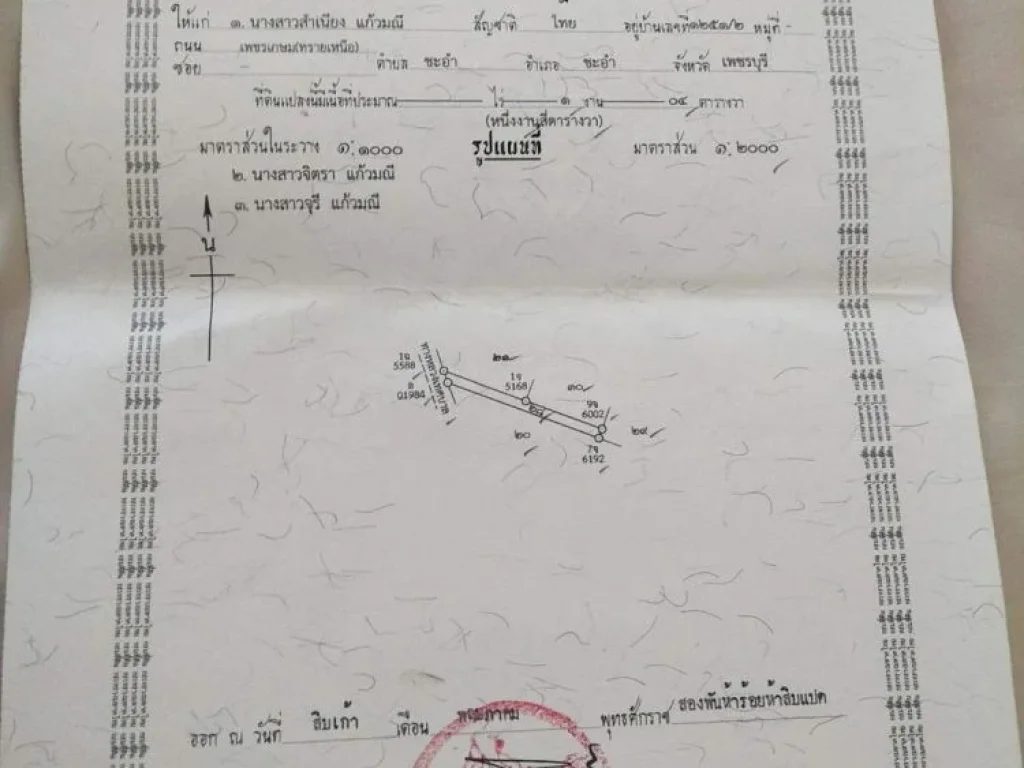 ให้แก่ ๑. นางสาวสำเนียง แก้วมณี สัญชาติ ไทย อยู่บ้านเลขที่ ๑๒๕๑/๒ หมู่ที่ -
ถนน เพชรเกษม(ทรายเหนือ)
ซอย - ตำบล ชะอำ อำเภอ ชะอำ จังหวัด เพชรบุรี
ที่ดินแปลงนี้มีเนื้อที่ประมาณ - ไร่ ๑ งาน ๐๔ ตารางวา
(หนึ่งงานสี่ตารางวา)
มาตราส่วนในระวาง ๑:๑๐๐๐ รูปแผนที่ มาตราส่วน ๑:๒๐๐๐
๒. นางสาวจิตรา แก้วมณี
๓. นางสาวจุรี แก้วมณี
น
๒๑
1จ
5588
1จ
5168
๓๐
Q1984
9จ
6002
๒๙
๒๘
๒๐
7จ
6192
ออก ณ วันที่ สิบเก้า เดือน พฤษภาคม พุทธศักราช สองพันห้าร้อยห้าสิบแปด